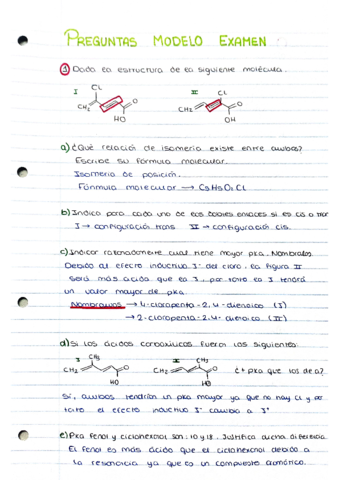 PREGUNTAS MODELO EXAMEN
1 Dada la estructura de la siguiente molécula.
I CL CH2 O HO
II CL CH2 O OH
a) ¿Qué relación de isomería existe entre ambos?
Escribe su fórmula molecular.
Isomería de posición.
Fórmula molecular → C5H5O2CL
b) Indica para cada uno de los dobles enlaces si es cis o trans
I → configuración trans II → configuración cis.
c) Indicar razonadamente cual tiene mayor pka. Nombralos
Debido al efecto inductivo 3- del cloro, la figura II
será más ácida que la I, por tanto la I tendrá
un valor mayor de pka.
Nombramos → 4-cloropenta-2,4-dienoico (I)
→ 2-cloropenta-2,4-dienoico (II)
d) Si los ácidos carboxílicos fueran los siguientes:
I CH3 CH2 O HO
II CH3 CH2 O HO ¿+ pka que los de a?
Sí, ambos tendrían un pka mayor ya que no hay CL y por
tanto el efecto inductivo 3- cambia a 3+
e) Pka Fenol y ciclohexanol son: 10 y 18. Justifica dicha diferencia
El fenol es más ácido que el ciclohexanol debido a
la resonancia ya que es un compuesto aromático.